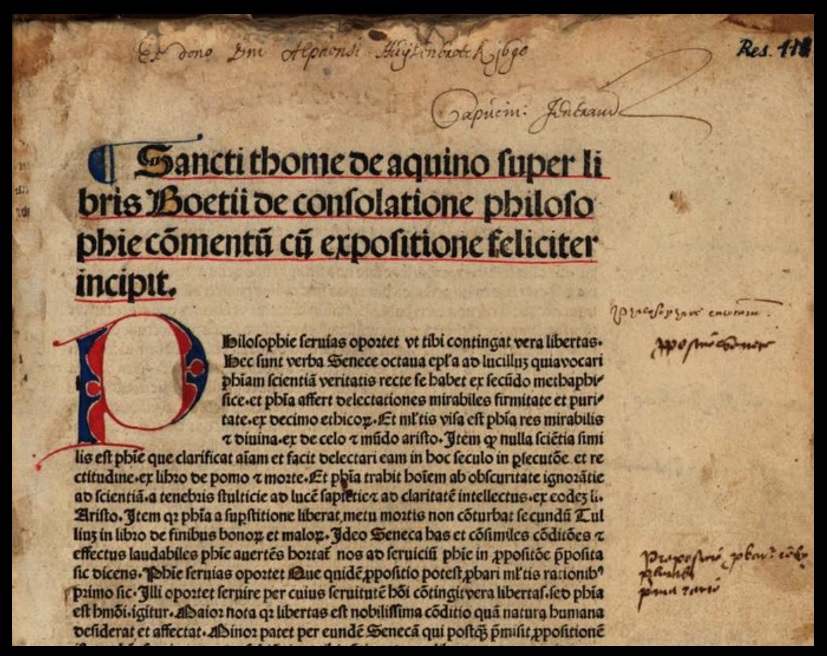 Ex dono Dni Alphonsi 1690
Res. 418
Capucin:
Sancti thome de aquino super li
bris Boetii de consolatione philoso
phie cõmentũ cũ expositione feliciter
incipit.
Philosophie seruias oportet vt tibi contingat vera libertas.
Hec sunt verba Senece octaua epl'a ad lucilluꝫ quia vocari
phiam scientiã veritatis recte se habet ex secũdo methaphi-
sice. et phĩa affert delectationes mirabiles firmitate et puri-
tate. ex decimo ethicoꝝ. Et ml'tis visa est phĩa res mirabilis
⁊ diuina. ex de celo ⁊ mũdo aristo. Itẽm ꝙ nulla sciẽtia simi
lis est phĩe que clarificat aĩam et facit delectari eam in hoc seculo in ꝑsecutõe. et re
ctitudine. ex libro de pomo ⁊ morte. Et phĩa trahit hoĩem ab obscuritate ignorãtie
ad scientiã. a tenebris stulticie ad lucẽ sapiẽtie ⁊ ad claritatẽ intellectus. ex codeꝫ li.
Aristo. Item qꝛ phĩa a suꝑstitione liberat, metu mortis non cõturbat secundũ Tul
liuꝫ in libro de finibus bonoꝝ et maloꝝ. Ideo Seneca has et cõsimiles cõditões ⁊
effectus laudabiles phĩe auertẽs hortat̃ nos ad seruiciũ phĩe in ꝓpositõe ꝑposita
sic dicens. Phĩe seruias oportet Que quidẽ ꝓpositio potest ꝓbari ml'tis rationibꝰ
primo sic. Illi oportet seruire per cuius seruitutẽ hõi cõtingit vera libertas. sed phĩa
est hmõi. igitur. Maior nota qꝛ libertas est nobilissima cõditio quã natura humana
desiderat et affectat. Minor patet per eundẽ Senecã qui postqꝫ p̃misit ꝓpositionẽ